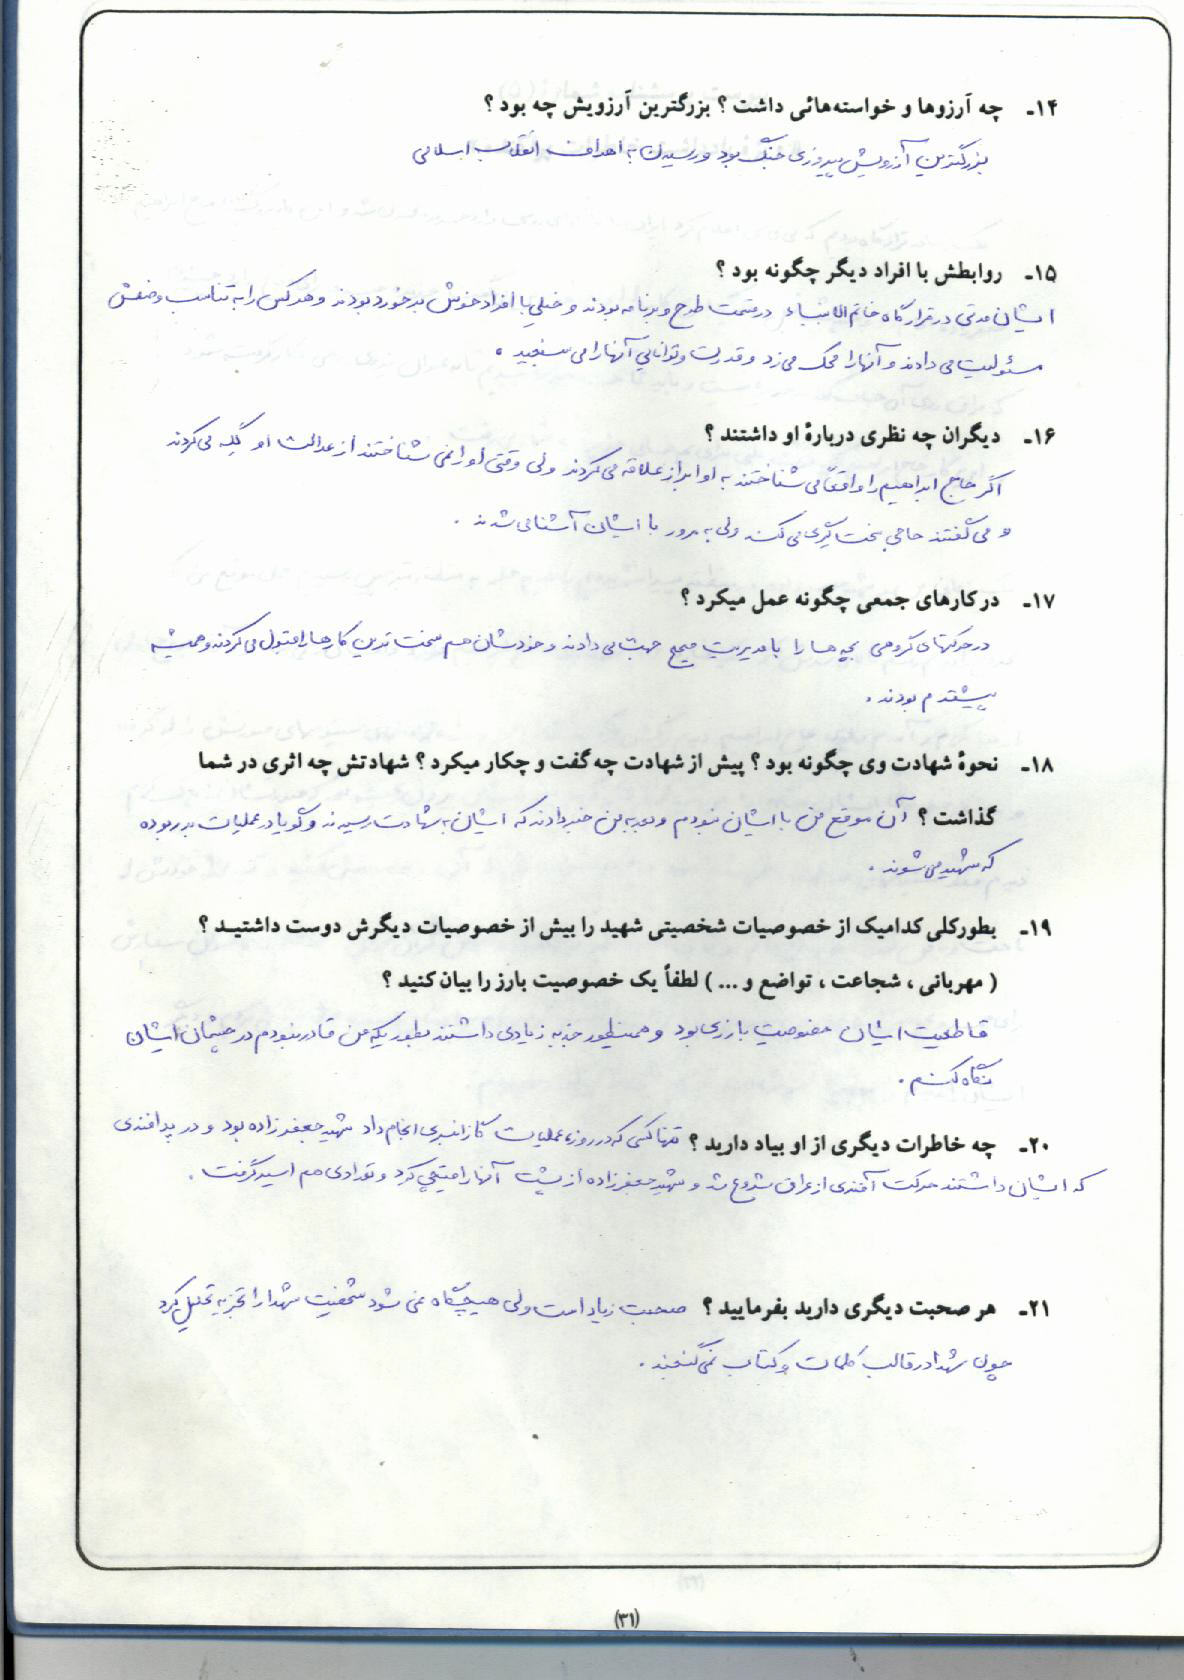 ۱۴ـ چه آرزوها و خواسته‌هائی داشت ؟ بزرگترین آرزویش چه بود ؟
بزرگترین آرزویش پیروزی جنگ بود و رسیدن به اهداف انقلاب اسلامی
۱۵ـ روابطش با افراد دیگر چگونه بود ؟
ایشان مدتی در قرارگاه خاتم الانبیاء در قسمت طرح و برنامه بودند و خیلی با افراد خوش برخورد بودند و هر کس را به تناسب وضعش
مسئولیت می دادند و آنها را محک می زد و قدرت و توانایی آنها را می سنجید .
۱۶ـ دیگران چه نظری دربارهٔ او داشتند ؟
اگر حاج ابراهیم را واقعاً می شناختند به او ابراز علاقه می کردند ولی وقتی او را نمی شناختند از عدالت او گله می کردند
و می گفتند حاجی سخت گیری می کند ولی به مرور با ایشان آشنا می شدند .
۱۷ـ در کارهای جمعی چگونه عمل میکرد ؟
در حرکتهای گروهی بچه ها را با مدیریت صحیح جهت می دادند و خودشان هم سخت ترین کارها را قبول می کردند و همیشه
پیشقدم بودند .
۱۸ـ نحوهٔ شهادت وی چگونه بود ؟ پیش از شهادت چه گفت و چکار میکرد ؟ شهادتش چه اثری در شما
گذاشت ؟ آن موقع من با ایشان نبودم ولی به من خبر دادند که ایشان به شهادت رسیدند و گویا در عملیات بدر بوده
که شهید می شوند .
۱۹ـ بطور کلی کدامیک از خصوصیات شخصیتی شهید را بیش از خصوصیات دیگرش دوست داشتید ؟
( مهربانی ، شجاعت ، تواضع و ... ) لطفاً یک خصوصیت بارز را بیان کنید ؟
قاطعیت ایشان خصوصیت بارزی بود و همینطور جذبه زیادی داشتند بطوریکه من قادر نبودم در چشمان ایشان
نگاه کنم .
۲۰ـ چه خاطرات دیگری از او بیاد دارید ؟ تنها کسی که در روز عملیات گازانبری انجام داد شهید جعفرزاده بود و در پدافندی
که ایشان داشتند حرکت آفندی از عراق شروع شد و شهید جعفرزاده از پشت آنها را قیچی کرد و تعدادی هم اسیر گرفت .
۲۱ـ هر صحبت دیگری دارید بفرمایید ؟ صحبت زیاد است ولی هیچگاه نمی شود شخصیت شهدا را تجزیه تحلیل کرد
چون شهدا در قالب کلمات و کتاب نمی گنجند .
(۳۱)